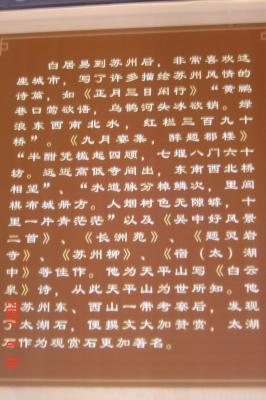 白居易到苏州后，非常喜欢这
座城市，写了许多描绘苏州风情的
诗篇，如《正月三日闲行》“黄鹂
巷口莺欲语，乌鹊河头冰欲销。绿
浪东西南北水，红栏三百九十
桥”。《九月宴集，醉题郡楼》
“半酣凭槛起四顾，七堰八门六十
坊。远近高低寺间出，东南西北桥
相望”、“水道脉分棹鳞次，里闾
棋布城册方。人烟树色无隙罅，十
里一片青茫茫”以及《吴中好风景
二首》、《长洲苑》、《题灵岩
寺》、《苏州柳》、《宿（太）湖
中》等佳作。他为天平山写《白云
泉》诗，从此天平山为世所知。他
苏州东、西山一带考察后，发现
了太湖石，便撰文大加赞赏，太湖
石作为观赏石更加著名。